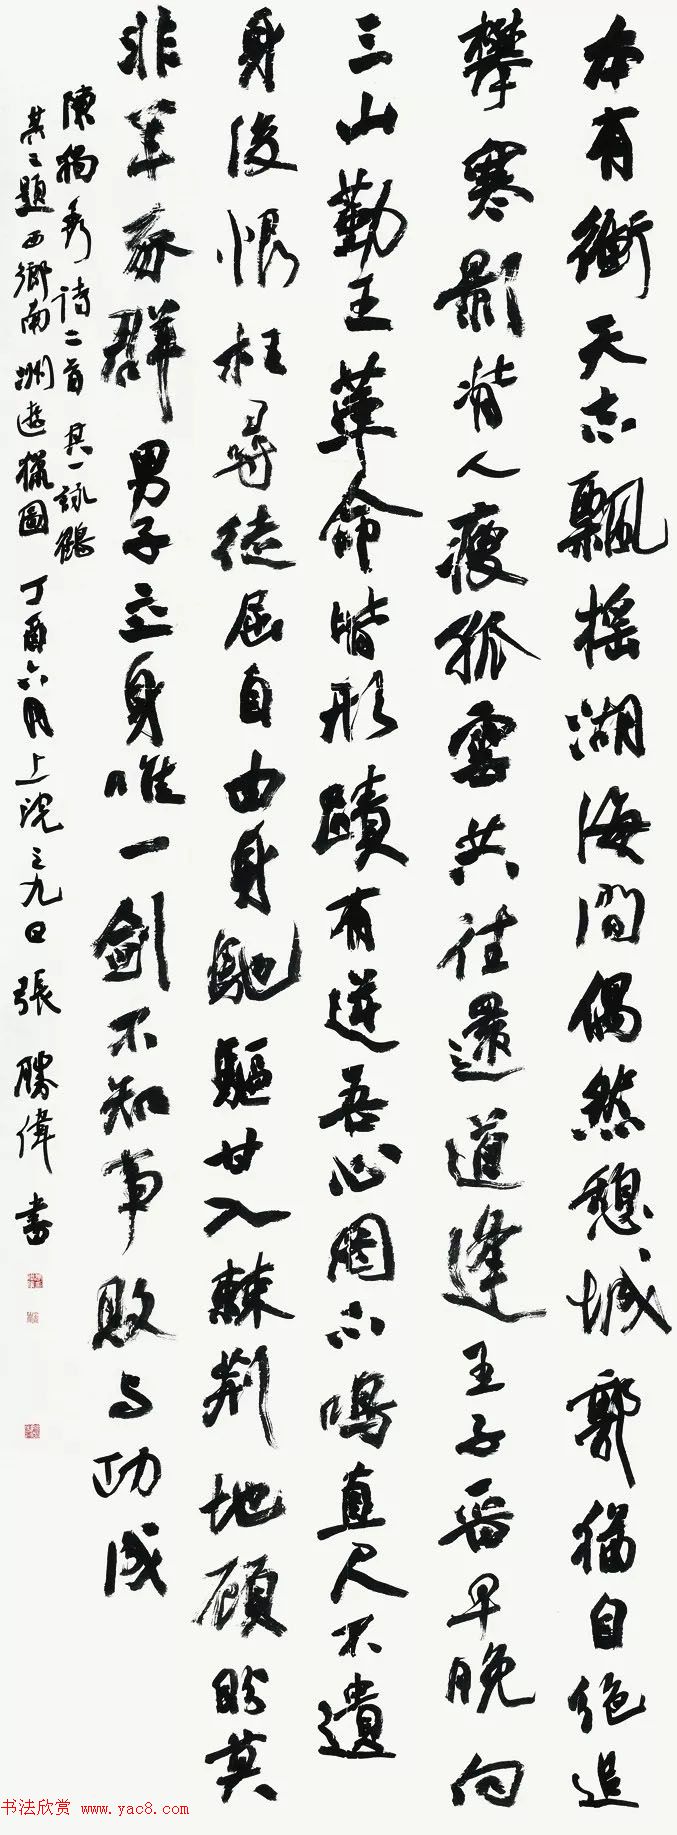 本有衝天志飄搖湖海間偶然憩城郭猶自絕追
攀寒影背人瘦孤雲共往還道逢王子晉早晚向
三山勤王革命皆形蹟有逆吾心罔不鳴直尺不遺
身後恨枉尋徒屈自由身馳驅甘入棘荊地顧盼莫
非羊豕群男子立身唯一劍不知事敗与功成
陳獨秀詩二首其一詠鶴
其二題西鄉南洲遊獵圖丁酉六月上浣之九日張勝偉書
书法欣赏 www.yac8.com